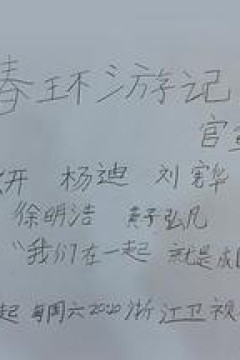 春环游记
官
杨迪 刘宪华
徐明浩 黄子弘凡
“我们在一起 就是成
起 每周六2020浙江卫视